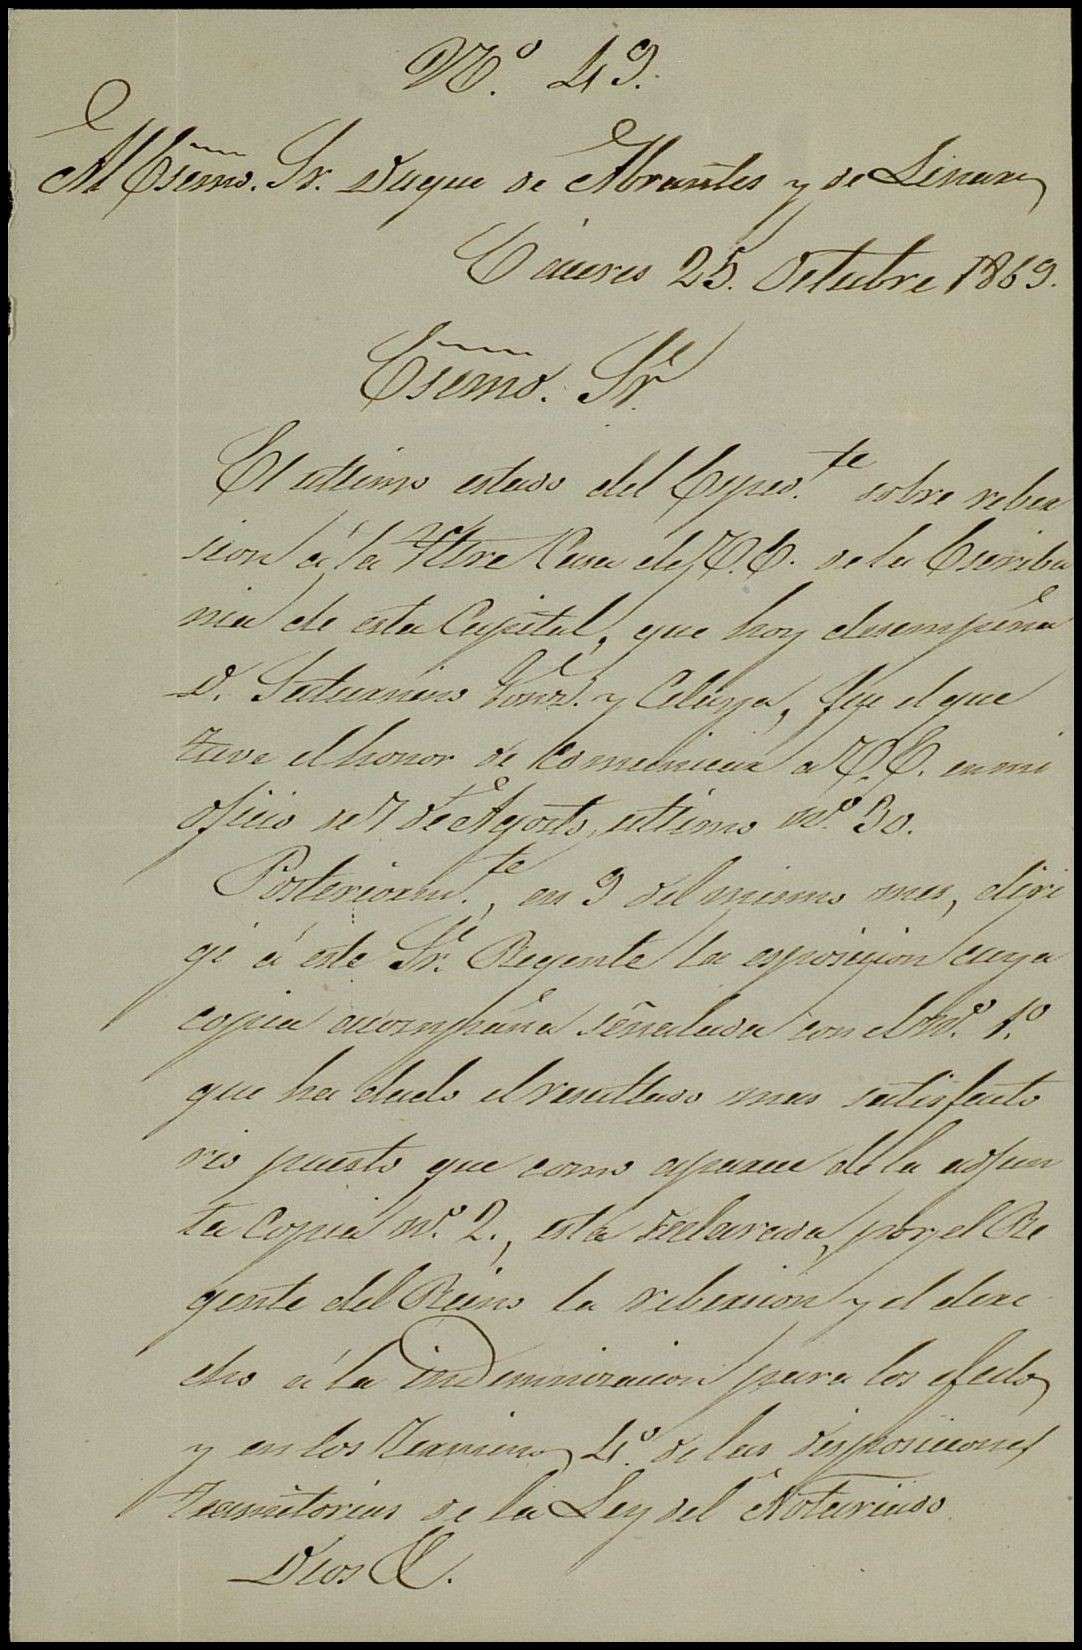 Nº. 49.
Al Esemo. Sr. Duque de Abrantes y de Linares
Cáceres 25. Octubre 1869.
Esemo. Sr.
El ultimo estado del Esped.te sobre rever
sion á la Iltre Casa de V.E. de la Escriba
nia de esta Capital, que hoy desempeña
D. Saturnino Gonz. y Celaya, fue el que
tuve el honor de comunicar a V.E. en mi
oficio de 7 de Agosto ultimo nº. 30.
Posteriorm.te, en 9 del mismo mes, diri
gi á este Sr. Regente la esposicion cuya
copia acompaña señalada con el nº. 1º.
que ha dado el resultado mas satisfacto
rio puesto que como aparece de la adjun
ta Copia nº. 2., esta declarada por el Re
gente del Reino la reversion y el dere
cho á la indemnizacion para los efectos
y en los terminos 4º. de las disposiciones
transitorias de la Ley del Notariado
Dios &.